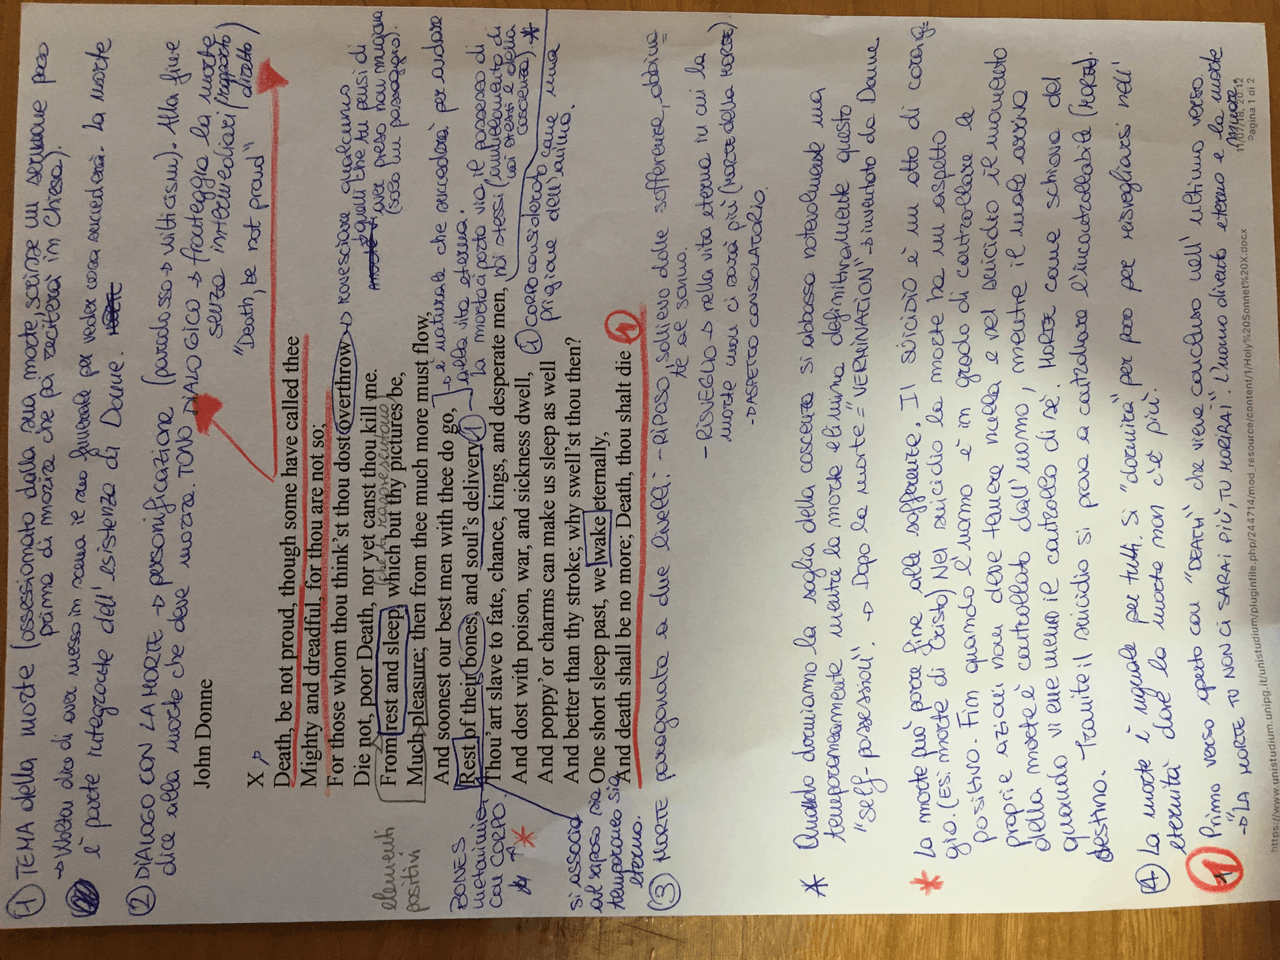 ① TEMA della morte (ossessionato dalla sua morte, scrisse un sermone poco
prima di morire che poi reciterà in Chiesa).
→ Walton dice di aver messo in scena il suo funerale per veder cosa succederà. La morte
è parte integrante dell'esistenza di Donne.
② DIALOGO CON LA MORTE → personificazione (paradosso → witticism). Alla fine
dice alla morte che deve morire. TONO DIALOGICO → fronteggia la morte
senza intermediari (rapporto diretto)
"Death, be not proud"
John Donne
X
Death, be not proud, though some have called thee
Mighty and dreadful, for thou are not so;
For those whom thou think'st thou dost overthrow → rovesciare qualcuno
quelli che tu pensi di aver preso non muoiono (solo un passaggio).
Die not, poor Death, nor yet canst thou kill me.
From rest and sleep, which but thy pictures be,
elementi positivi
Much pleasure; then from thee much more must flow,
And soonest our best men with thee do go, → è naturale che succederà per andare
nella vita eterna.
Rest of their bones, and soul's delivery ①
la morte porta via il possesso di
noi stessi
Thou'art slave to fate, chance, kings, and desperate men,
And dost with poison, war, and sickness dwell,
① corpo considerato come una
prigione dell'anima.
And poppy' or charms can make us sleep as well
And better than thy stroke; why swell'st thou then?
One short sleep past, we wake eternally,
And death shall be no more; Death, thou shalt die
BONES
metonimia
con CORPO
si associa
al riposo
temporaneo sia
eterno.
③ MORTE paragonata a due livelli: - RIPOSO, sollievo dalle sofferenze, abbina=
te al sonno.
- RISVEGLIO → nella vita eterna in cui la
morte non ci sarà più (MORTE della MORTE)
- ASPETTO CONSOLATORIO.
* Quando dormiamo la soglia della coscienza si abbassa notevolmente ma
temporaneamente mentre la morte elimina definitivamente questo
"self-possession". → Dopo la morte = "VERMINATION" → inventato da Donne
* La morte può porre fine alle sofferenze. Il suicidio è un atto di corag=
gio. (Es: morte di Cristo) Nel suicidio la morte ha un aspetto
positivo. Fin quando l'uomo è in grado di controllare le
proprie azioni non deve temere nulla e nel suicidio il momento
della morte è controllato dall'uomo, mentre il male arriva
quando vi ene meno il controllo di sè. MORTE come schiava del
destino. Tramite il suicidio si prova a controllare l'incontrollabile (MORTE)
④ La morte è uguale per tutti. Si "dormirà" per poco per risvegliarsi nell'
eternità dove la morte non c'è più.
① Primo verso aperto con "DEATH" che viene concluso nell'ultimo verso.
→ "LA MORTE TU NON CI SARAI PIÙ, TU MORIRAI". L'uomo diventa eterno e la morte
muore
11/07/18, 20:12
Pagina 1 di 2
https://www.unistudium.unipg.it/unistudium/pluginfile.php/244714/mod_resource/content/1/Holy%20Sonnet%20X.docx